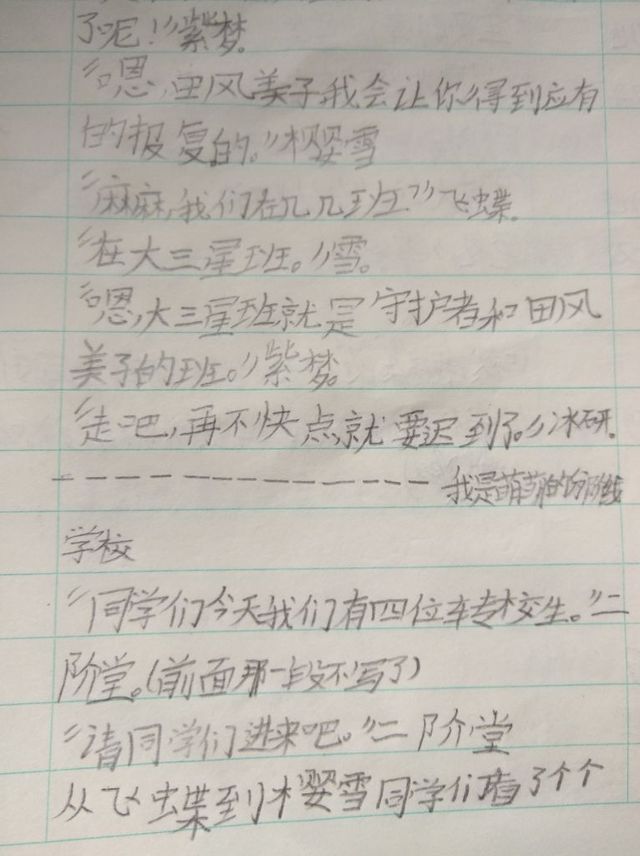 了呢！”紫梦。
“嗯，田风美子我会让你得到应有
的报复的。”樱雪
“麻麻，我们在几几班？”飞蝶。
“在大三星班。”雪。
“嗯，大三星班就是守护者和田风
美子的班。”紫梦。
“走吧，再不快点就要迟到了。”冰研。
---------------我是萌萌的分阶线
学校
“同学们今天我们有四位转校生。”二
阶堂。(前面那一段不写了)
“请同学们进来吧。”二阶堂
从飞蝶到樱雪同学们看了个个